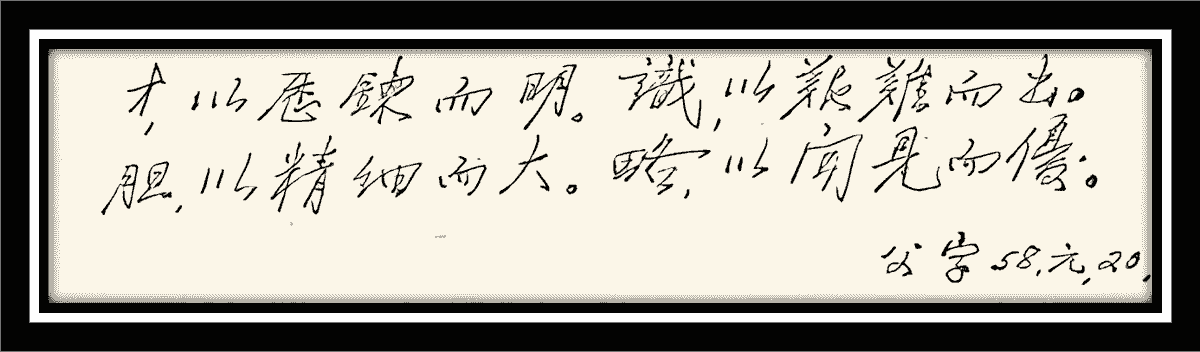 才,以歷鍊而明。識,以艱難而出。
胆,以精細而大。略,以闻見而優。
父字58.元,20,